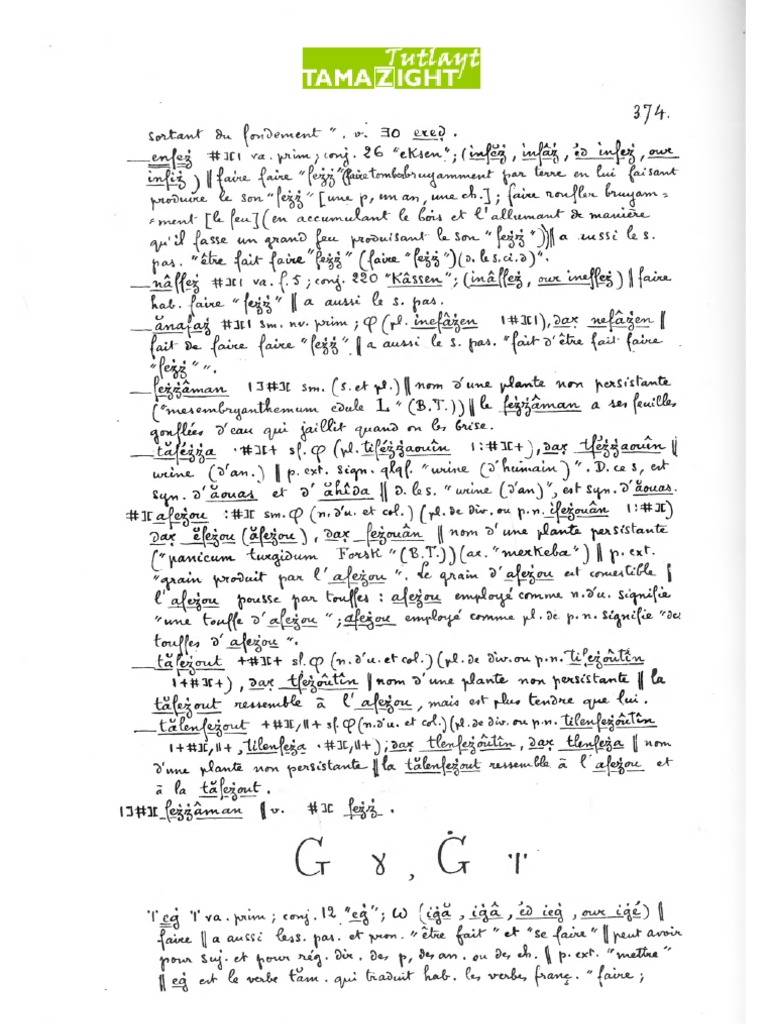 Tutlayt
TAMAZIGHT
374.
sortant du fondement". v. ⴺO ereḍ.
enfeẓ #ⵊⵊI va. prim; conj. 26 "eksen"; (infĕẓ, infâẓ, éd infeẓ, our
infiẓ) ‖ faire faire "feẓẓ" (faire tomber bruyamment par terre en lui faisant
produire le son "feẓẓ" [une p, un an, une ch.]; faire ronfler bruyam=
=ment [le feu] (en accumulant le bois et l'allumant de manière
qu'il fasse un grand feu produisant le son "feẓẓ")) ‖ a aussi le s.
pas. "être fait faire "feẓẓ" (faire "feẓẓ") (d. le s. ci. d)".
nâffeẓ #ⵊⵊI va. f. 5; conj. 220 "Kâssen"; (inâffeẓ, our ineffeẓ) ‖ faire
hab. faire "feẓẓ" ‖ a aussi le s. pas.
ănafaẓ #ⵊⵊI sm. nv. prim; φ (pl. inefâẓen I#ⵊⵊI), daṛ nefâẓen ‖
fait de faire faire "feẓẓ" ‖ a aussi le s. pas. "fait d'être fait faire
"feẓẓ"".
feẓẓâman Iⴺ#ⵊⵊ sm. (s. et pl.) ‖ nom d'une plante non persistante
("mesembryanthemum edule L" (B.T.)) ‖ le feẓẓâman a ses feuilles
gonflées d'eau qui jaillit quand on les brise.
tăféẓẓa ·#ⵊⵊ+ sf. φ (pl. tiféẓẓaouîn I:#ⵊⵊ+), daṛ tféẓẓaouîn ‖
urine (d'an.) ‖ p. ext. sign. qlqf. "urine (d'humain)". D. ce s, est
syn. d'ăouas et d'ăhîda ‖ D. le s. "urine (d'an)", est syn. d'ăouas.
#ⵊⵊ afeẓou :#ⵊⵊ sm. φ (n. d'u. et col.) (pl. de div. ou p.n. ifeẓouân I:#ⵊⵊ)
daṛ ĕfeẓou (ăfeẓou), daṛ feẓouân ‖ nom d'une plante persistante
("panicum turgidum Forsk" (B.T.)) (ar. "merkeba") ‖ p. ext.
"grain produit par l'afeẓou". Le grain d'afeẓou est comestible ;
l'afeẓou pousse par touffes : afeẓou employé comme n. d'u. signifie
"une touffe d'afeẓou"; afeẓou employé comme pl. de p.n. signifie "des
touffes d'afeẓou".
tăfeẓout +#ⵊⵊ+ sf. φ (n. d'u. et col.) (pl. de div. ou p.n. tifeẓoûtîn
I+#ⵊⵊ+), daṛ tfeẓoûtîn ‖ nom d'une plante non persistante ‖ la
tăfeẓout ressemble à l'afeẓou, mais est plus tendre que lui.
tălenfeẓout +#ⵊⵊ,II+ sf. φ (n. d'u. et col.) (pl. de div. ou p.n. tilenfeẓoûtîn
I+#ⵊⵊ,II+, tilenfeẓa ·#ⵊⵊ,II+); daṛ tlenfeẓoûtîn, daṛ tlenfeẓa ‖ nom
d'une plante non persistante ‖ la tălenfeẓout ressemble à l'afeẓou et
à la tăfeẓout.
Iⴺ#ⵊⵊ feẓẓâman ‖ v. #ⵊⵊ feẓẓ.
G ɣ, Ġ ⵖ
eġ va. prim; conj. 12 "eġ"; ω (iġă, iġâ, éd ieġ, our iġé) ‖
faire ‖ a aussi les s. pas. et pron. "être fait" et "se faire" ‖ peut avoir
pour suj. et pour rég. dir. des p, des an. ou des ch. ‖ p. ext. "mettre"
‖ eġ est le verbe tăm. qui traduit hab. les verbes franç. "faire ;